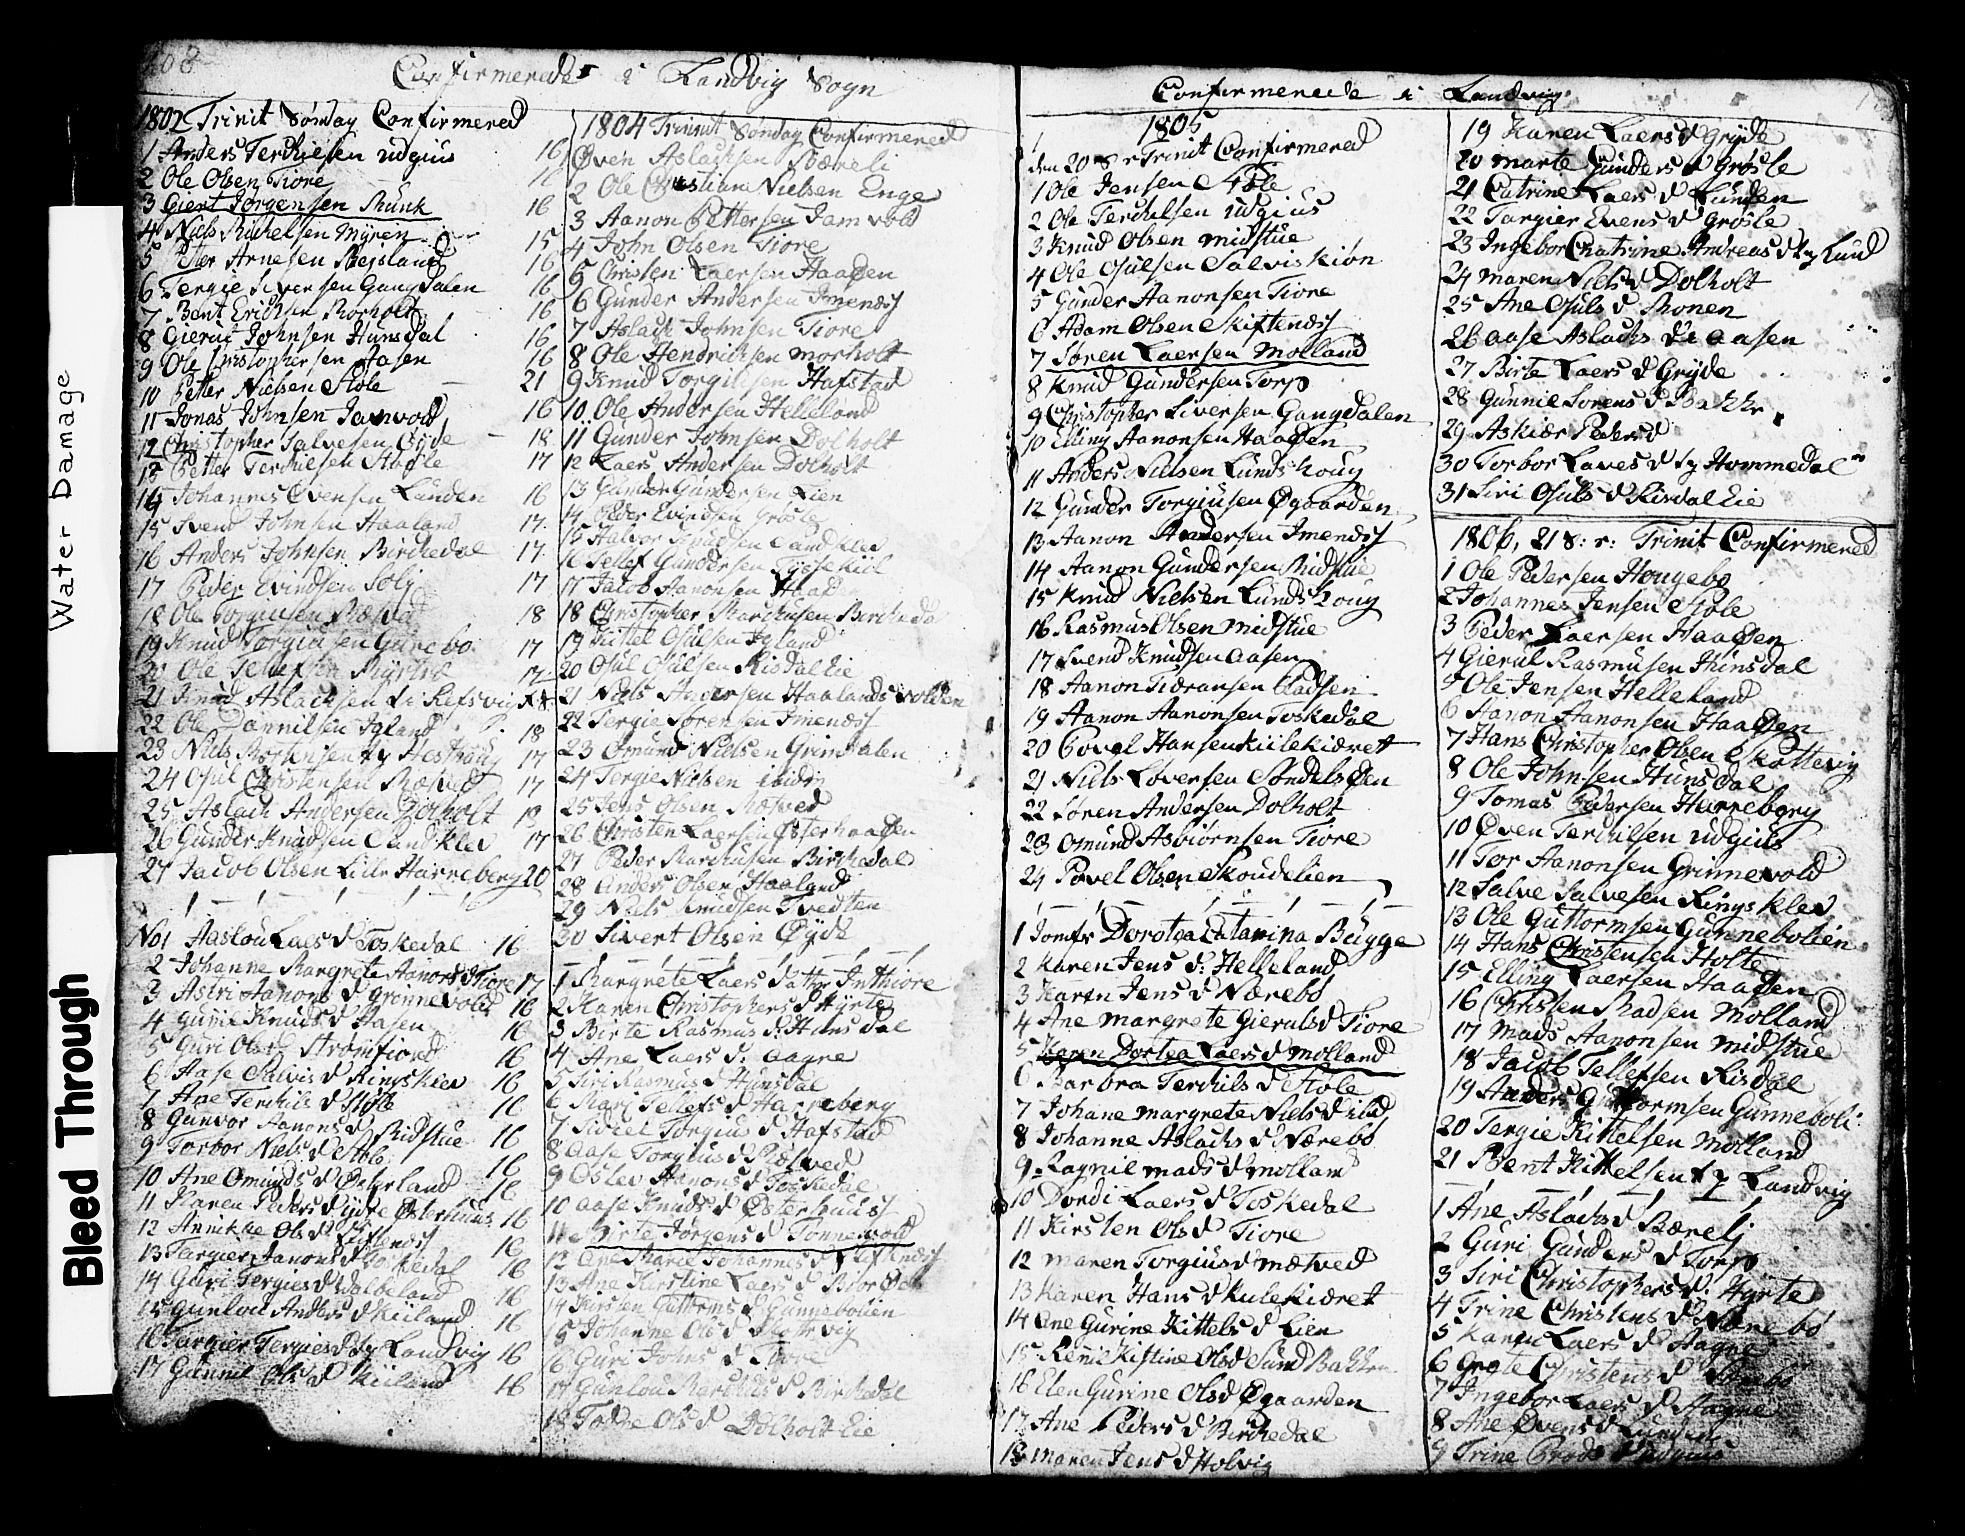 108
Confirmerede i Landvig Sogn
1802 Trinit Søndag Confirmered
1 Anders Terchielsen udgius 16
2 Ole Olsen Tiore
3 Giert Jørgensen Munk 16
4 Niels Michelsen Myren 15
5 Peter Arnesen Beisland 16
6 Tergie Siversen Gangdalen 16
7 Bent Erichsen Morholt 16
8 Gierul Johnsen Hunsdal 16
9 Ole Christophersen Aasen 16
10 Petter Nielsen Støle 21
11 Jonas Johnsen Jamvold 16
12 Christopher Salvesen 18
13 Petter Terchielsen Støle 17
14 Johannes Øvensen Lunden 16
15 Svend Johnsen Haaland 17
16 Anders Johnsen Birchedal 17
17 Peder Evindsen 17
18 Ole Torgiusen 18
19 Knud Torgiusen Gunebo 17
20 Ole Tellefsen 17
21 Knud Aslachsen Refsvig 18
22 Ole Dannilsen Igland 18
23 Niels 17
24 Osul Christensen 17
25 Aslach Andersen Dolholt
26 Gunder Knudsen Landklev 17
27 Jacob Olsen Lille Harreberg 20
No 1 Aaslou Laers d Toskedal 16
2 Johanne Margrete Aanons d Tiore 17
3 Astri Aanons d Grennevold 16
4 Gurie Knuds d Aasen 16
5 Guri Ols d Strømfiord 16
6 Aase Salvis d Ringsklev 16
7 Ane Terchils d Støle 16
8 Gunvor Aanons d Midstue 16
9 Torbor Niels d Støle 16
10 Ane Omunds d Østerland 16
11 Karen Peders d ydre Østerhuus 16
12 Annikke Ols d Skiftenes 16
13 Targier Aanons d Toskedal 16
14 Guri Tergies d Walbeland 16
15 Gunlou Anders d Kiiland 16
16 Targier Tergies d Ty Landvig 16
17 Gunnil Ols d Kiiland 16
1804 Trinit Søndag Confirmered
1 Øven Aslachsen Bæreli
2 Ole Christian Nielsen Enge
3 Aanon Pettersen Jamvold
4 John Olsen Tiore
5 Christen Laersen Haaøen
6 Gunder Andersen Imenæs
7 Aslach Johnsen Tiore
8 Ole Hendrichsen Morholt
9 Knud Torgilsen Hafstad
10 Ole Andersen Helleland
11 Gunder Johnsen Dolholt
12 Laers Andersen Dolholt
13 Gunder Gundersen Lien
14 Peder Evindsen Grøsle
15 Halvor Landklev
16 Tellef Gundersen
17 Jacob Aanonsen Haaøen
18 Christopher Marchusen Birchedal
19 Kittel Osulsen Igland
20 Osul Osulsen Risdal Eie
21 Niels Andersen Haalandsvolden
22 Tergie Sørensen Imenæs
23 Omund Nielsen Grimdalen
24 Tergie Nielsen ibid
25 Jens Olsen Mæsved
26 Christen Laersen Østerhaaøen
27 Peder Marchusen Birchedal
28 Anders Olsen Haaland
29 Niels Knudsen Tvedten
30 Sivert Olsen Øyde
1 Margrete Laers datter Inthiore
2 Karen Christophers d Hyrte
3 Birte Rasmus d: Hunsdal
4 Ane Laers d: Aagre
5 Siri Rasmus d Hunsdal
6 Mari Tellefs d Harreberg
7 Sidcel Torgius d Hafstad
8 Aase Torgius d Mæsved
9 Oslev Aanons d Toskedal
10 Aase Knuds d Østerhuus
11 Birte Jørgens d Tønnevold
12 Ane Marie Johannes d
13 Ane Kirstine Laers d
14 Kirsten Guttorms d Gunnebolien
15 Johanne Ols d Skottevig
16 Guri Johns d Tiore
17 Gunlou Marchus d Birchedal
18 Ols d Dolholt Eie
Confirmerede i Landvig
1805
den 20 S: r Trinit Confirmered
1 Ole Jensen Støle
2 Ole Terchelsen udgius
3 Knud Olsen Midstue
4 Ole Osulsen Salviskiøn
5 Gunder Aanonsen Tiore
6 Adam Olsen Skiftenæs
7 Søren Laersen Molland
8 Knud Gundersen Torp
9 Christopher Siversen Gangdalen
10 Elling Aanonsen Haaøen
11 Anders Nielsen Lundskoug
12 Gunder Torgiusen Øgaarden
13 Aanon Andersen Imenæs
14 Aanon Gundersen Midstue
15 Knud Nielsen Lundskoug
16 Rasmus Olsen Midstue
17 Svend Knudsen Aasen
18 Aanon Tiøransen Gladsen
19 Aanon Aanonsen Toskedal
20 Povel Hansen Kulekiæret
21 Niels Løversen Søndeløen
22 Søren Andersen Dolholt
23 Omund Asbiørnsen Tiore
24 Povel Olsen Skoudelien
1 Jomfr Dorotea Catarina Bugge
2 Karen Jens d: Helleland
3 Karen Jens d Nærebø
4 Ane Margrete Gieruls d Tiore
5 Karen Dortea Laers d Molland
6 Barbra Terchils d Støle
7 Johane Margrete Niels d ibid
8 Johanne Aslachs d Nærebø
9 Ragnil Mads d Molland
10 Dordi Laers d Toskedal
11 Kirsten Ols d Tiore
12 Maren Torgius d Mæsved
13 Karen Hans d Kulekiæret
14 Ane Gurine Kittels d Lien
15 Kistine Ols d Sund Bakken
16 Elen Gurine Ols d Øgaarden
17 Ane Peders d Birchedal
18 Maren Jens d Holvig
19 Karen Laers d Gryde
20 Marte Gunders d Grøsle
21 Catrine Laers d Lunden
22 Targier Evens d Grøsle
23 Ingebor Chatrine Andreas d Ty Lund
24 Maren Niels d Dolholt
25 Ane Osuls d Monen
26 Aase Aslachs d Aasen
27 Birte Laers d Gryde
28 Gunnil Sørens d Bakke
29 Askier Peders d
30 Torbor Laves d Ty Hommedal
31 Siri Osuls d Risdal Eie
1806, 21 S: r: Trinit Confirmered
1 Ole Pedersen Hougebo
2 Johannes Jensen Støle
3 Peder Laersen Haaøen
4 Gierul Rasmusen Hunsdal
5 Ole Jensen Helleland
6 Aanon Aanonsen Haaøen
7 Hans Christopher Olsen Skottevig
8 Ole Johnsen Hunsdal
9 Tomas Pedersen Harreberg
10 Øven Terchilsen udgius
11 Tor Aanonsen Grinnevold
12 Salve Salvesen Ringsklev
13 Ole Guttormsen Gunnebolien
14 Hans Christensen Holte
15 Elling Laersen Haaøen
16 Christen Madsen Molland
17 Mads Aanonsen Midstue
18 Jacob Tellefsen Risdal
19 Anders Guttormsen Gunneboli
20 Tergie Kittelsen Molland
21 Bent Kittelsen Ty Landvig
1 Ane Aslachs d Bæreli
2 Guri Gunders d Torp
3 Siri Christophers d: Hyrte
4 Trine Christens d Nærebø
5 Karen Laers d Aagre
6 Grete Christens d
7 Ingebor Laers d Aagre
8 Ane Øvens d Lunden
9 Trine
Water Damage
Bleed Through